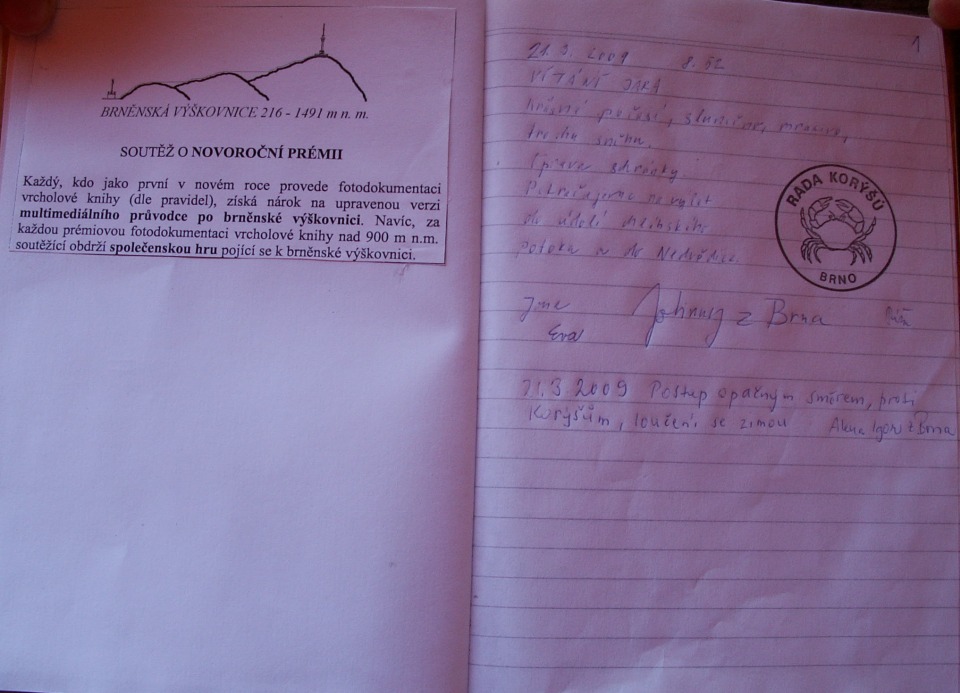 BRNĚNSKÁ VÝŠKOVNICE 216 - 1491 m n. m.
SOUTĚŽ O NOVOROČNÍ PRÉMII
Každý, kdo jako první v novém roce provede fotodokumentaci
vrcholové knihy (dle pravidel), získá nárok na upravenou verzi
multimediálního průvodce po brněnské výškovnici. Navíc, za
každou prémiovou fotodokumentaci vrcholové knihy nad 900 m n.m.
soutěžící obdrží společenskou hru pojící se k brněnské výškovnici.
1
21. 3. 2009 8.52
VÍTÁNÍ JARA
Krásné počasí, sluníčko, mrazivo,
trochu sněhu.
Úprava schránky.
Pokračujeme na výlet
do údolí
potoka a do Nedvědice.
RADA KORÝŠŮ
BRNO
Eva Johnny z Brna
21.3 2009 Postup opačným směrem, proti
Korýšům, loučení se zimou Alena Igor z Brna